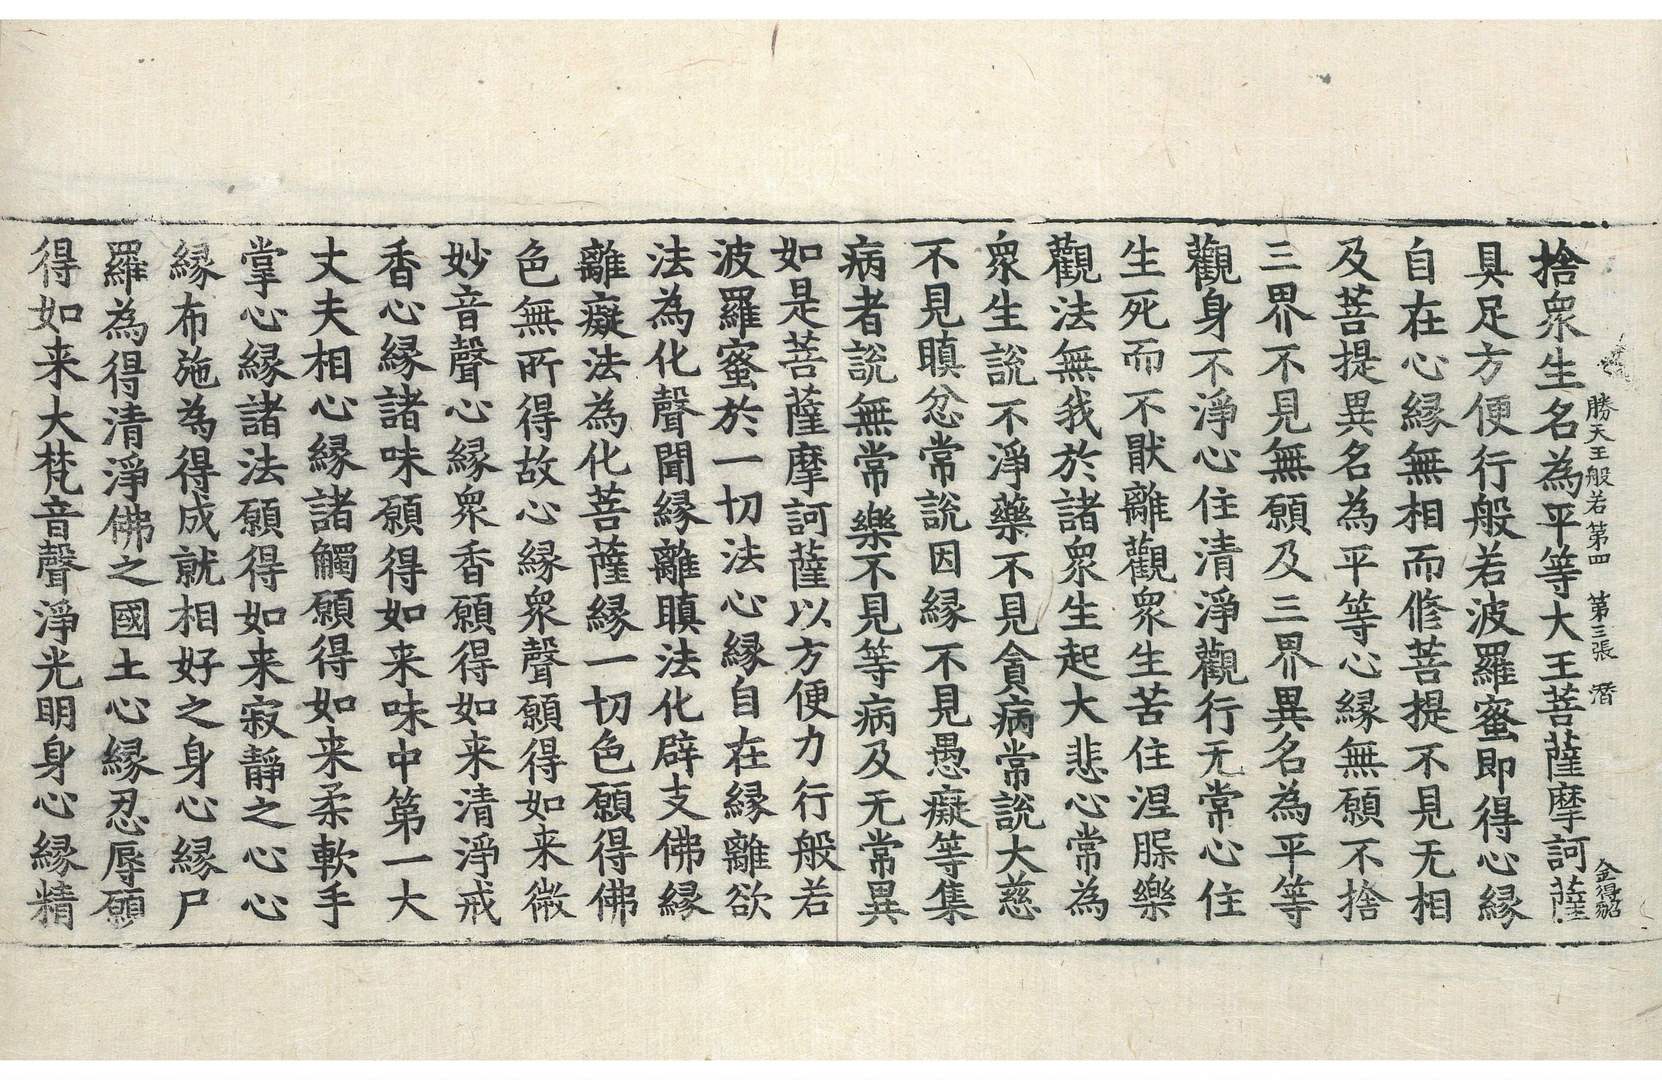 勝天王般若第四　第三張　潛
捨衆生名為平等大王菩薩摩訶薩
具足方便行般若波羅蜜即得心縁
自在心縁無相而修菩提不見无相
及菩提異名為平等心縁無願不捨
三界不見無願及三界異名為平等
觀身不淨心住清淨觀行无常心住
生死而不猒離觀衆生苦住涅槃樂
觀法無我於諸衆生起大悲心常為
衆生說不淨藥不見貪病常說大慈
不見瞋忿常說因緣不見愚癡等集
病者說無常樂不見等病及无常異
如是菩薩摩訶薩以方便力行般若
波羅蜜於一切法心縁自在縁離欲
法為化聲聞縁離瞋法化辟支佛縁
離癡法為化菩薩縁一切色願得佛
色無所得故心縁衆聲願得如来微
妙音聲心縁衆香願得如来清淨戒
香心縁諸味願得如来味中第一大
丈夫相心縁諸觸願得如来柔軟手
掌心縁諸法願得如来寂靜之心心
縁布施為得成就相好之身心縁尸
羅為得清淨佛之國土心縁忍辱願
得如来大梵音聲淨光明身心縁精